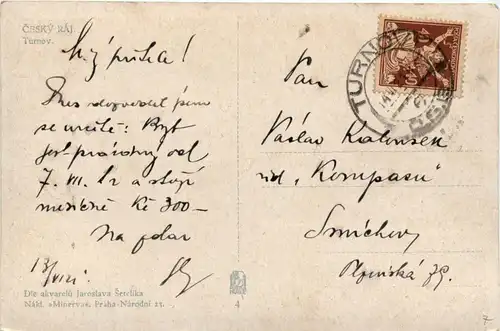 ČESKÝ RÁJ
Turnov.
Milý příteli!
Dnes dozvěděl jsem
se určitě: Byt
jest prázdný od
7. VII. a stojí
měsíčně Kč 300–
Na zdar
13/VIII.
Dle akvarelů Jaroslava Šetelíka
Nákl. »Minerva«, Praha-Národní 25.
4
TURNOV
Pan
Václav
řid. „Kompasu"
Smíchov
Plzeňská 79.
7